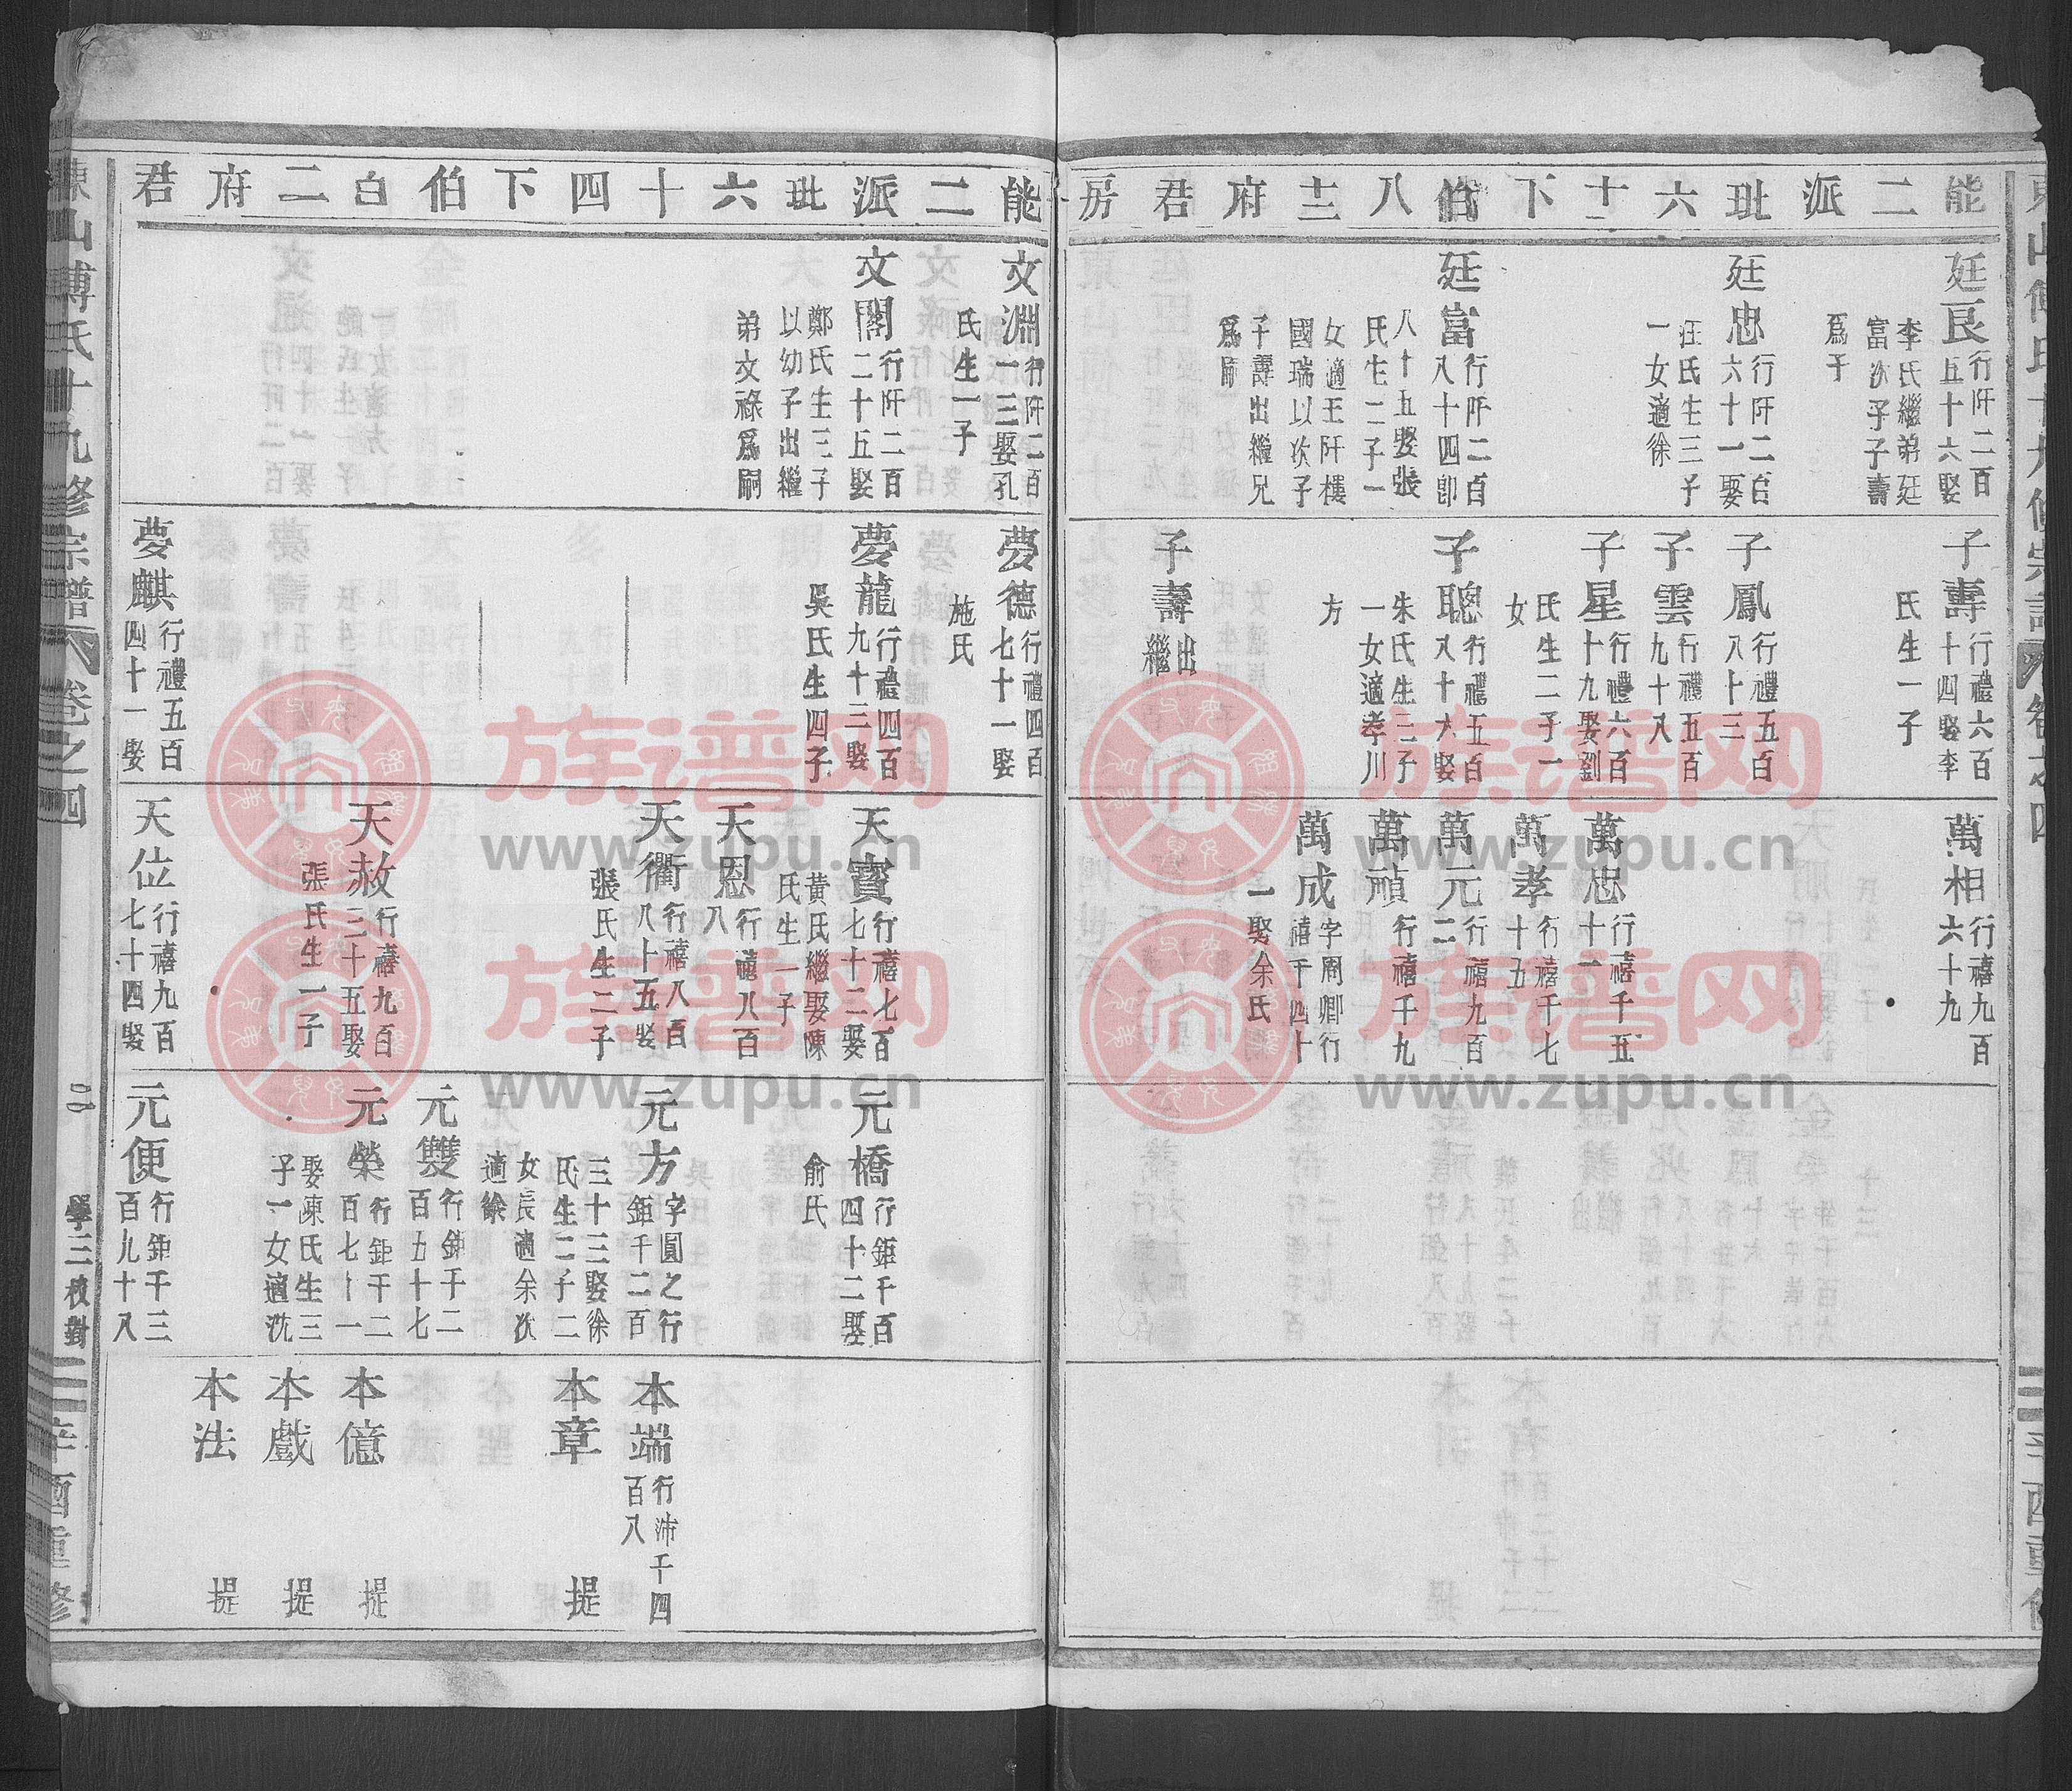 能二派玭六十下伯八十三府君房
廷良行阡二百五十六娶
李氏繼弟廷富次子子壽
爲子
廷忠行阡二百六十一娶
汪氏生三子一女適徐
廷富行阡二百八十四卽
八十五娶張氏生二子一
女適王阡樓國瑞以次子
子壽出繼兄爲嗣
子壽行禮六百十四娶李
氏生一子
子鳳行禮五百八十三
子雲行禮五百九十八
子星行禮六百十九娶劉
氏生二子一女
子聰行禮五百八十六娶
朱氏生三子一女適孝川
方
子壽出繼
萬相行禧九百六十九
萬忠行禧千五十一
萬孝行禧千七十五
萬元行禧九百二
萬禎行禧千九
萬成字周卿行禧千四十
一娶余氏
能二派玭六十四下伯白二府君
文淵行阡二百一三娶孔
氏生一子
文閣行阡二百二十五娶
鄭氏生三子以幼子出繼
弟文祿爲嗣
夢德行禮四百七十一娶
施氏
夢龍行禮四百九十三娶
吳氏生四子
夢麒行禮五百四十一娶
天寳行禧七百七十二娶
黄氏繼娶陳氏生一子
天恩行禧八百八
天衢行禧八百八十五娶
張氏生二子
天赦行禧九百三十五娶
張氏生一子
天位行禧九百七十四娶
元橋行鉅千百四十二娶
俞氏
元方字圓之行鉅千二百
三十三娶徐氏生二子二
女長適余次適徐
元雙行鉅千二百五十七
元榮行鉅千二百七十一
娶陳氏生三子一女適沈
元便行鉅千三百九十八
本端行沛千四百八
本章 提
本億 提
本戲 提
本法 提
東山傅氏十九修宗譜 卷之四 二 學三校對 辛酉重修
族谱网
www.zupu.cn
族谱网
www.zupu.cn
族谱网
www.zupu.cn
族谱网
www.zupu.cn